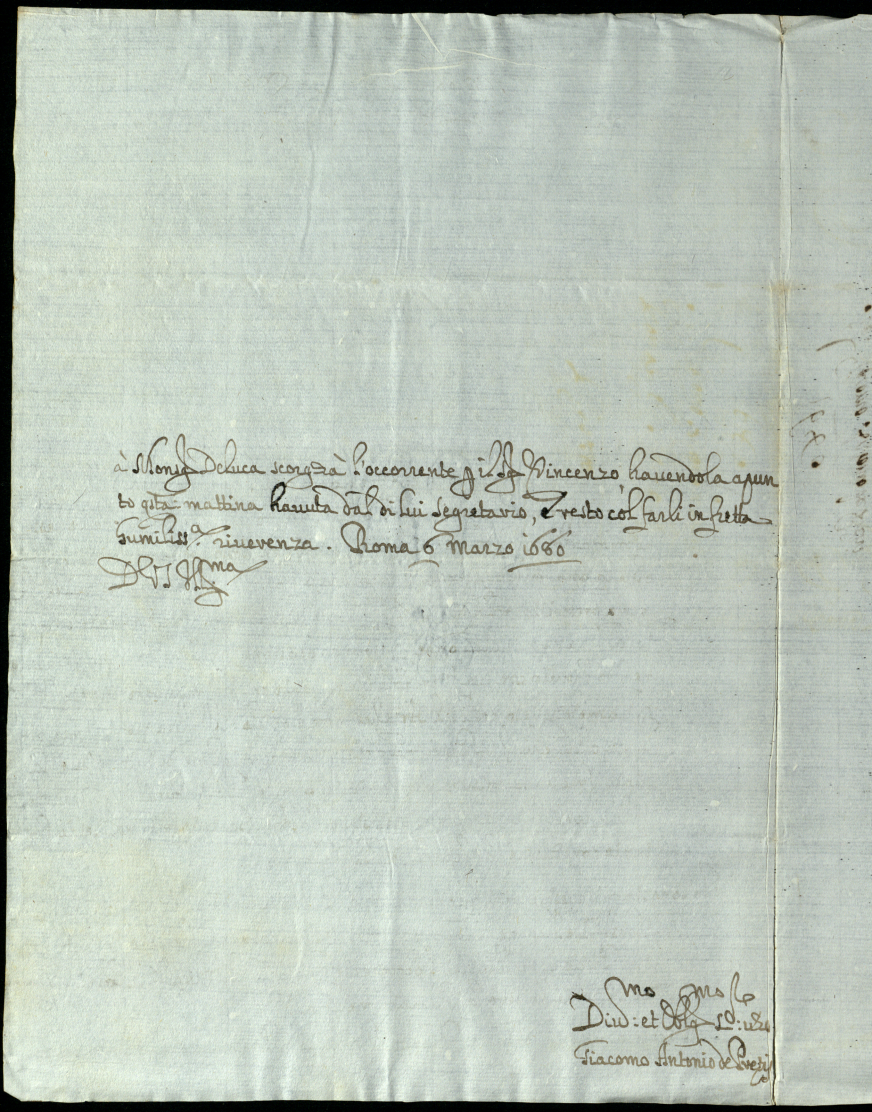 à Monsig.r Deluca scorgerà l'occorrente p il Sig.r Vincenzo, havendola apun
to q.sta mattina havuta dal di lui Segretario, E resto col farli in fretta
humiliss.a riverenza. Roma 6 Marzo 1680
Di V.S. Ill.ma
Div.mo et Obblig.mo Se.re
Giacomo Antonio de